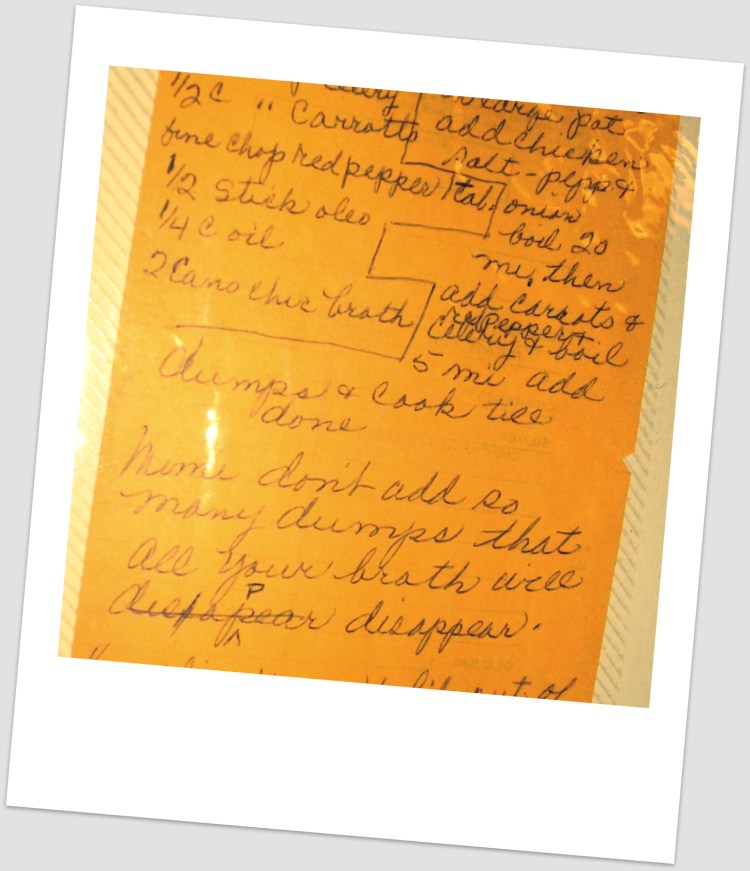 celery
1/2 c " Carrotts
fine chop red pepper 1 tab.
1/2 stick oleo
1/4 c oil
2 Cans chic broth
large pot
add chicken
salt - pepp &
onion
boil 20
mi, then
add carrots &
red pepper +
celery & boil
5 mi add
dumps & cook till
done
Mimi don't add so
many dumps that
all your broth will
disapear P disappear.
out of